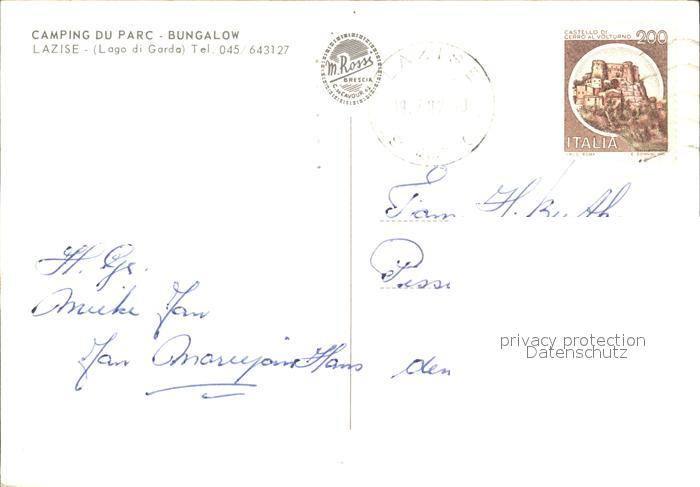 CAMPING DU PARC - BUNGALOW
LAZISE - (Lago di Garda) Tel. 045/643127
M. Rossi
BRESCIA
LAZISE
CASTELLO DI
CERRO AL VOLTURNO
200
ITALIA
Fam. H.
H. Gr.
Mieke Jan
Jan Marjan Hans
den
privacy protection
Datenschutz